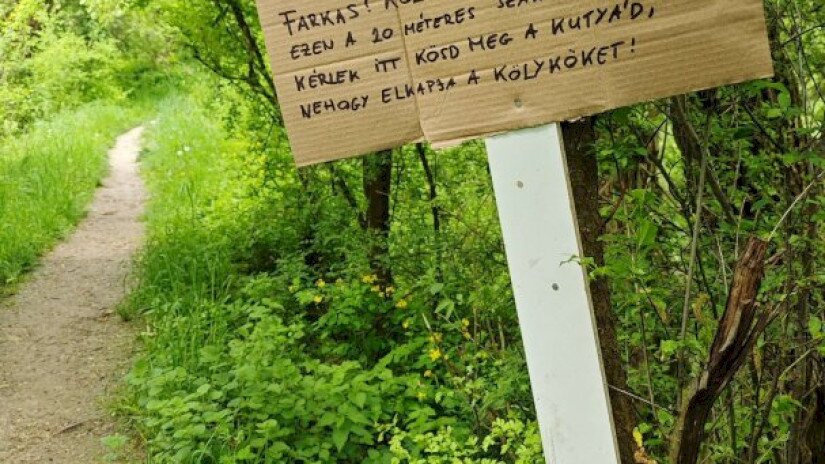 FARKAS!
EZEN A 20 MÉTERES
KÉRLEK ITT KÖSD MEG A KUTYÁ'D,
NEHOGY ELKAPJA A KÖLYKÖKET!